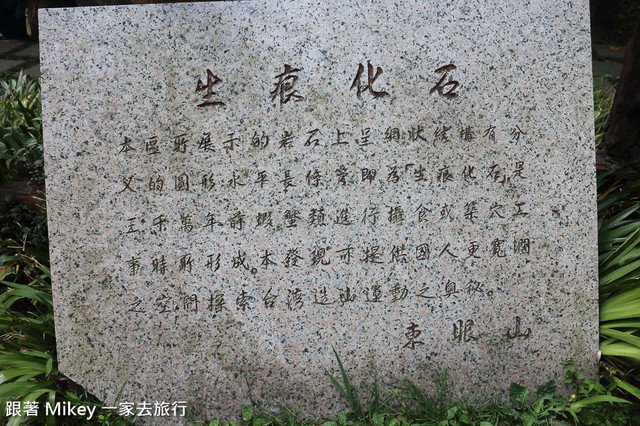 生痕化石
本區所展示的岩石上呈網狀結構有分
叉的圓形水平長條管即為「生痕化石」是
三千萬年前蝦蟹類進行攝食或築穴工
事時所形成。本發現亦提供國人更寬濶
之空間探索台灣造山運動之奧祕。
東眼山
跟著 Mikey 一家去旅行